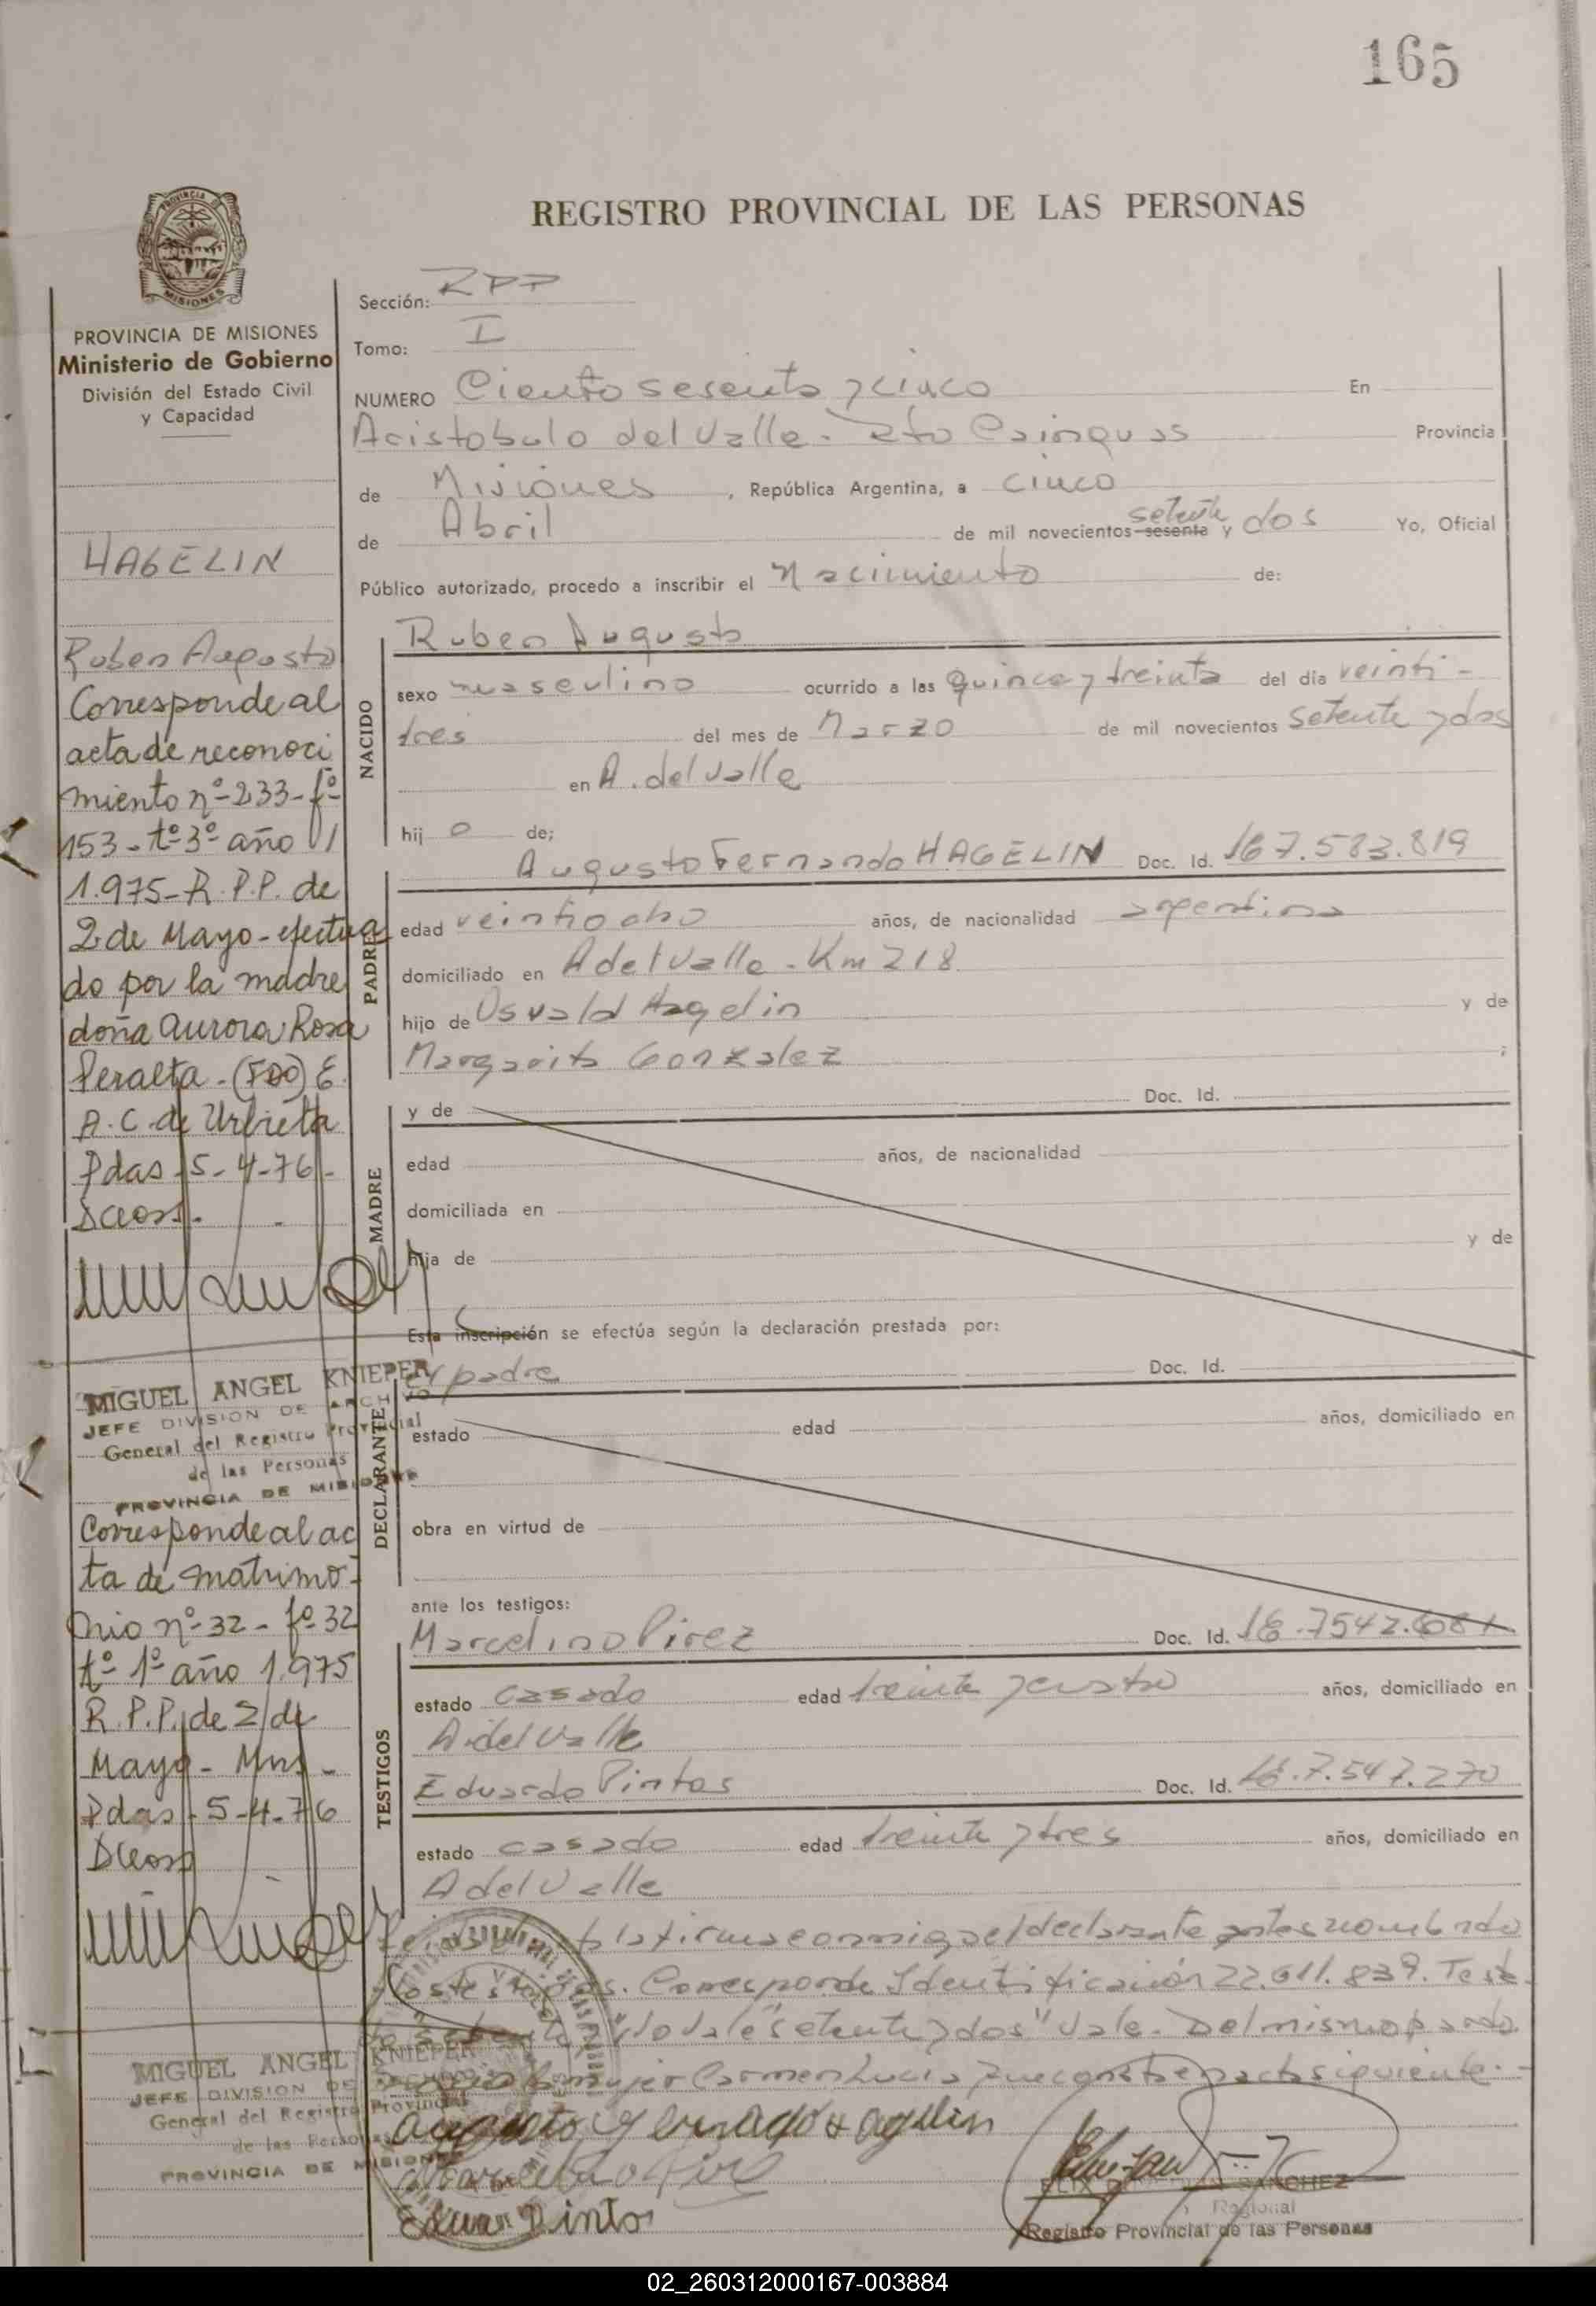 165
REGISTRO PROVINCIAL DE LAS PERSONAS
PROVINCIA
MISIONES
PROVINCIA DE MISIONES
Ministerio de Gobierno
División del Estado Civil
y Capacidad
HAGELIN
Ruben Augusto
Corresponde al
acta de reconoci
miento nº-233-fº-
153-tº3º año
1.975-R.P.P. de
2 de Mayo-efectua
do por la madre
doña Aurora Rosa
Peralta-(FDO) E.
A.C. de Urbieta
Pdas-5-4-76-
MIGUEL ANGEL KNIEPER
JEFE DIVISION DE ARCHIVO
General del Registro Provincial
de las Personas
PROVINCIA DE MISIONES
Corresponde al ac
ta de matrimo-
nio nº-32-fº-32
tº-1º año 1.975
R.P.P. de 2 de
Mayo-Mns-
Pdas-5-4-76
MIGUEL ANGEL KNIEPER
JEFE DIVISION DE
General del Registro Provincial
de las Personas
PROVINCIA DE MISIONES
Sección: RPP
Tomo: I
NUMERO Ciento sesenta y cinco En
Aristobulo del Valle. Dto Cainguas Provincia
de Misiones, República Argentina, a cinco
de Abril de mil novecientos sesenta setenta y dos Yo, Oficial
Público autorizado, procedo a inscribir el Nacimiento de:
NACIDO
Ruben Augusto
sexo masculino ocurrido a las quince y treinta del día veinti-
tres del mes de Marzo de mil novecientos setenta y dos
en A. del Valle
hij o de;
PADRE
Augusto Fernando HAGELIN Doc. Id. 167.583.819
edad veintiocho años, de nacionalidad argentina
domiciliado en A del Valle-Km 218
hijo de Osvald Hagelin y de
Margarita Gonzalez;
MADRE
y de Doc. Id.
edad años, de nacionalidad
domiciliada en
hija de y de
Esta inscripción se efectúa según la declaración prestada por:
DECLARANTE
el padre Doc. Id.
estado edad años, domiciliado en
obra en virtud de
ante los testigos:
TESTIGOS
Marcelino Pirez Doc. Id.
estado casado edad treinta y cuatro años, domiciliado en
A. del Valle
Eduardo Pintos Doc. Id. 7.547.270
estado casado edad treinta y tres años, domiciliado en
A del Valle
la firma conmigo el declarante antes nombrado
. Corresponde Identificación 22.611.839. Test
"setenta y dos" Vale. Del mismo parto
mujer Carmen Lucia que consta en acta siguiente.-
Eduar Pintos
SANCHEZ
Regional
Registro Provincial de las Personas
02_260312000167-003884